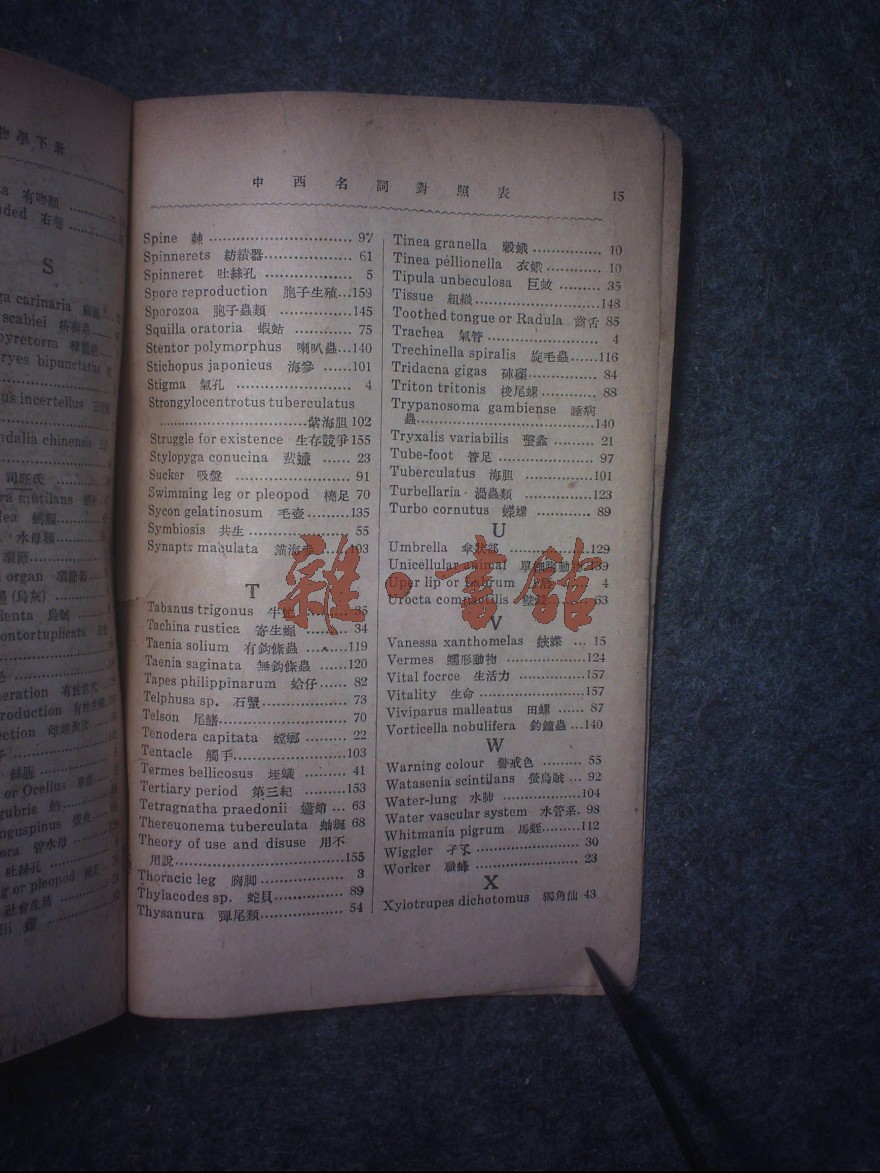 物學下册
有吻類
右卷
S
中西名詞對照表 15
Spine 棘 97
Spinnerets 紡績器 61
Spinneret 吐絲孔 5
Spore reproduction 胞子生殖 159
Sporozoa 胞子蟲類 145
Squilla oratoria 蝦蛄 75
Stentor polymorphus 喇叭蟲 140
Stichopus japonicus 海參 101
Stigma 氣孔 4
Strongylocentrotus tuberculatus
紫海胆 102
Struggle for existence 生存競爭 155
Stylopyga conucina 蜚蠊 23
Sucker 吸盤 91
Swimming leg or pleopod 橈足 70
Sycon gelatinosum 毛壺 135
Symbiosis 共生 55
Synapta maculata 錨海參 103
T
Tabanus trigonus 牛虻 35
Tachina rustica 寄生蠅 34
Taenia solium 有鈎條蟲 119
Taenia saginata 無鈎條蟲 120
Tapes philippinarum 蛤仔 82
Telphusa sp. 石蟹 73
Telson 尾鰭 70
Tenodera capitata 螳螂 22
Tentacle 觸手 103
Termes bellicosus 垤蟻 41
Tertiary period 第三紀 153
Tetragnatha praedonii 蠨蛸 63
Thereuonema tuberculata 蚰蜒 68
Theory of use and disuse 用不
用說 155
Thoracic leg 胸脚 3
Thylacodes sp. 蛇貝 89
Thysanura 彈尾類 54
Tinea granella 穀蛾 10
Tinea pellionella 衣蛾 10
Tipula unbeculosa 巨蚊 35
Tissue 組織 148
Toothed tongue or Radula 齒舌 85
Trachea 氣管 4
Trechinella spiralis 旋毛蟲 116
Tridacna gigas 硨磲 84
Triton tritonis 梭尾螺 88
Trypanosoma gambiense 睡病
蟲 140
Tryxalis variabilis 螇蚸 21
Tube-foot 管足 97
Tuberculatus 海胆 101
Turbellaria 渦蟲類 123
Turbo cornutus 蠑螺 89
U
Umbrella 傘狀部 129
Unicellular animal 單細胞動物 139
Uper lip or Labrum 上唇 4
Urocta compactilis 壁錢 63
V
Vanessa xanthomelas 蛺蝶 15
Vermes 蠕形動物 124
Vital focrce 生活力 157
Vitality 生命 157
Viviparus malleatus 田螺 87
Vorticella nobulifera 釣鐘蟲 140
W
Warning colour 警戒色 55
Watasenia scintilans 螢烏賊 92
Water-lung 水肺 104
Water vascular system 水管系 98
Whitmania pigrum 馬蛭 112
Wiggler 孑孓 30
Worker 職蜂 23
X
Xyiotrupes dichotomus 獨角仙 43
雜·書館